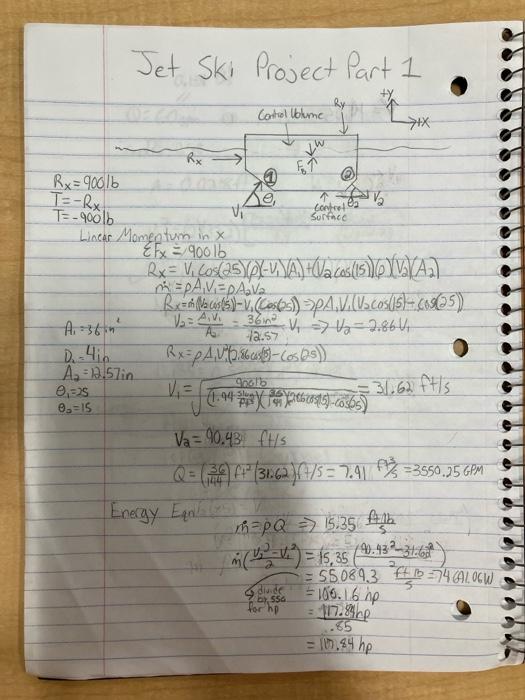 Jet Ski Project Part 1
+Y
Control Volume
Ry
+X
Rx
W
FB
1
2
V1
θ1
θ2
V2
Control
Surface
Rx = 900lb
T = -Rx
T = -900lb
Linear Momentum in x
ΣFx = 900lb
Rx = V1 cos(25)(ρ)(-V1)(A1)+(V2 cos(15))(ρ)(V2)(A2)
ṁ = ρA1V1 = ρA2V2
Rx = ṁ(V2cos(15)-V1(cos(25)) => ρA1V1(V2cos(15)-cos(25))
V2 = A1V1/A2 = 36in²/12.57 V1 => V2 = 2.86V1
A1 = 36in²
D2 = 4in
A2 = 12.57in
θ1 = 25
θ2 = 15
Rx = ρA1V1²(2.86cos(15)-cos(25))
V1 = √(900lb/((1.94 slug/ft³)(36/144)(2.86cos(15)-cos(25)))) = 31.62 ft/s
V2 = 90.43 ft/s
Q = (36/144) ft² (31.62) ft/s = 7.91 ft³/s = 3550.25 GPM
Energy Eqn
ṁ = ρQ => 15.35 ft·lb/s
ṁ((V2²-V1²)/2) = 15.35 ((90.43²-31.62²)/2)
= 55089.3 ft·lb/s = 74691.06W
↳ divide
by 550
for hp
= 100.16 hp
= 117.84hp/.85
= 117.84 hp